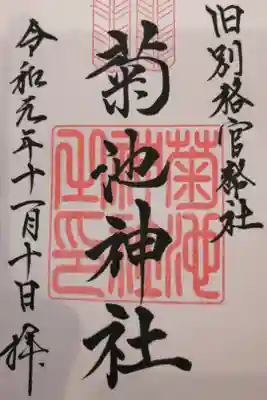 旧別格官幣社
菊池神社
菊池神社之印
令和元年十一月十日拝